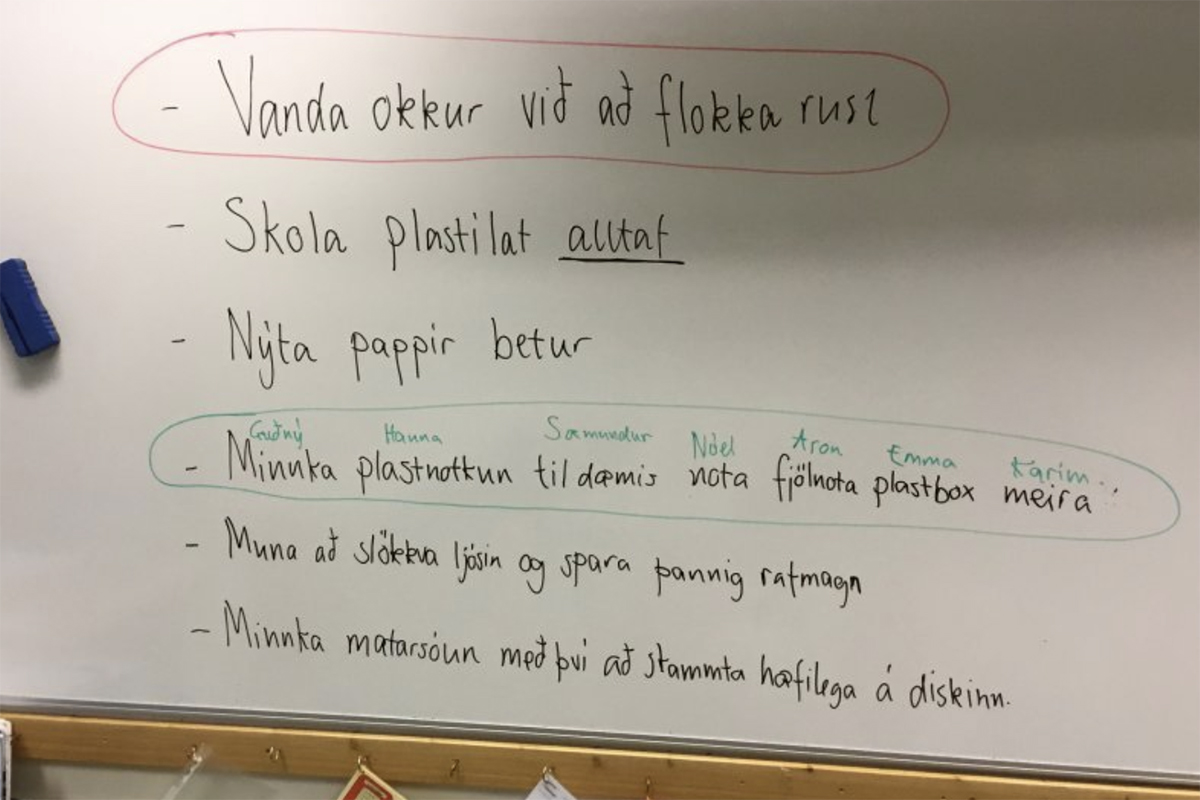 - Vanda okkur við að flokka rusl
- Skola plastilát alltaf
- Nýta pappír betur
Guðný Hanna Sæmundur Nóel Aron Emma Karim
- Minnka plastnotkun til dæmis nota fjölnota plastbox meira
- Muna að slökkva ljósin og spara þannig rafmagn
- Minnka matarsóun með því að skammta hæfilega á diskinn.